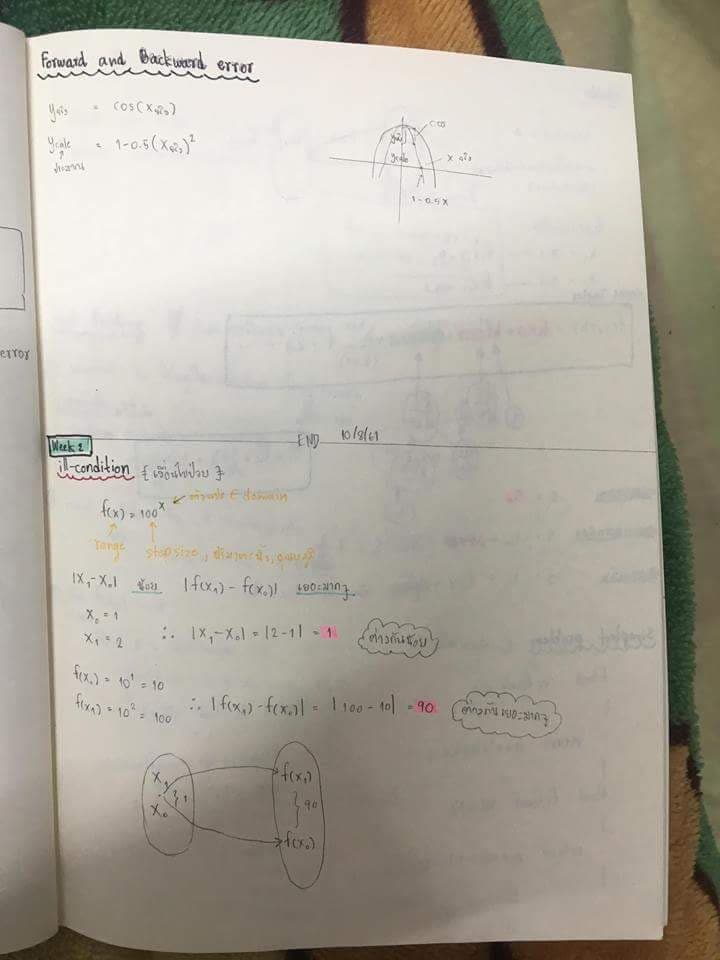 Forward and Backward error
yจริง = cos(xจริง)
ycalc = 1-0.5(xจริง)²
ประมาณ
cos
yจริง
ycalc
x จริง
1-0.5x
error
END 10/8/61
Week 2
ill-condition { เงื่อนไขป่วย }
f(x) = 100ˣ ตัวแปร ∈ domain
range stop size,
|x₁-x₀| น้อย |f(x₁) - f(x₀)| เยอะมากๆ
x₀ = 1
x₁ = 2 ∴ |x₁-x₀| = |2-1| = 1 ต่างกันน้อย
f(x₀) = 10¹ = 10
f(x₁) = 10² = 100 ∴ |f(x₁) - f(x₀)| = |100-10| = 90 ต่างกันเยอะมากๆ
x₁ f(x₁)
} 1 } 90
x₀ f(x₀)